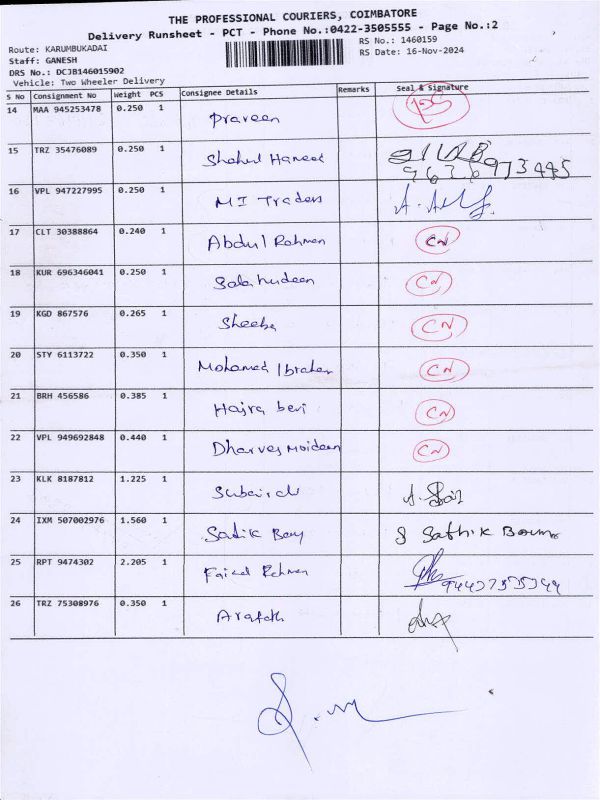 THE PROFESSIONAL COURIERS, COIMBATORE
Delivery Runsheet - PCT - Phone No.:0422-3505555 - Page No.:2
Route: KARUMBUKADAI RS No.: 1460159
Staff: GANESH RS Date: 16-Nov-2024
DRS No.: DCJB146015902
Vehicle: Two Wheeler Delivery
S No Consignment No Weight PCS Consignee Details Remarks Seal & Signature
14 MAA 945253478 0.250 1 Praveen
15 TRZ 35476089 0.250 1 Shahul Hameed
16 VPL 947227995 0.250 1 MI Traders
17 CLT 30388864 0.240 1 Abdul Rahman CN
18 KUR 696346041 0.250 1 Salahudeen CN
19 KGD 867576 0.265 1 Sheeba CN
20 STY 6113722 0.350 1 Mohamed Ibrahim CN
21 BRH 456586 0.385 1 Hajra bevi CN
22 VPL 949692848 0.440 1 Dharves Moideen CN
23 KLK 8187812 1.225 1
24 IXM 507002976 1.560 1 Sadik
25 RPT 9474302 2.205 1 Faizal Rehman
26 TRZ 75308976 0.350 1 Arafath